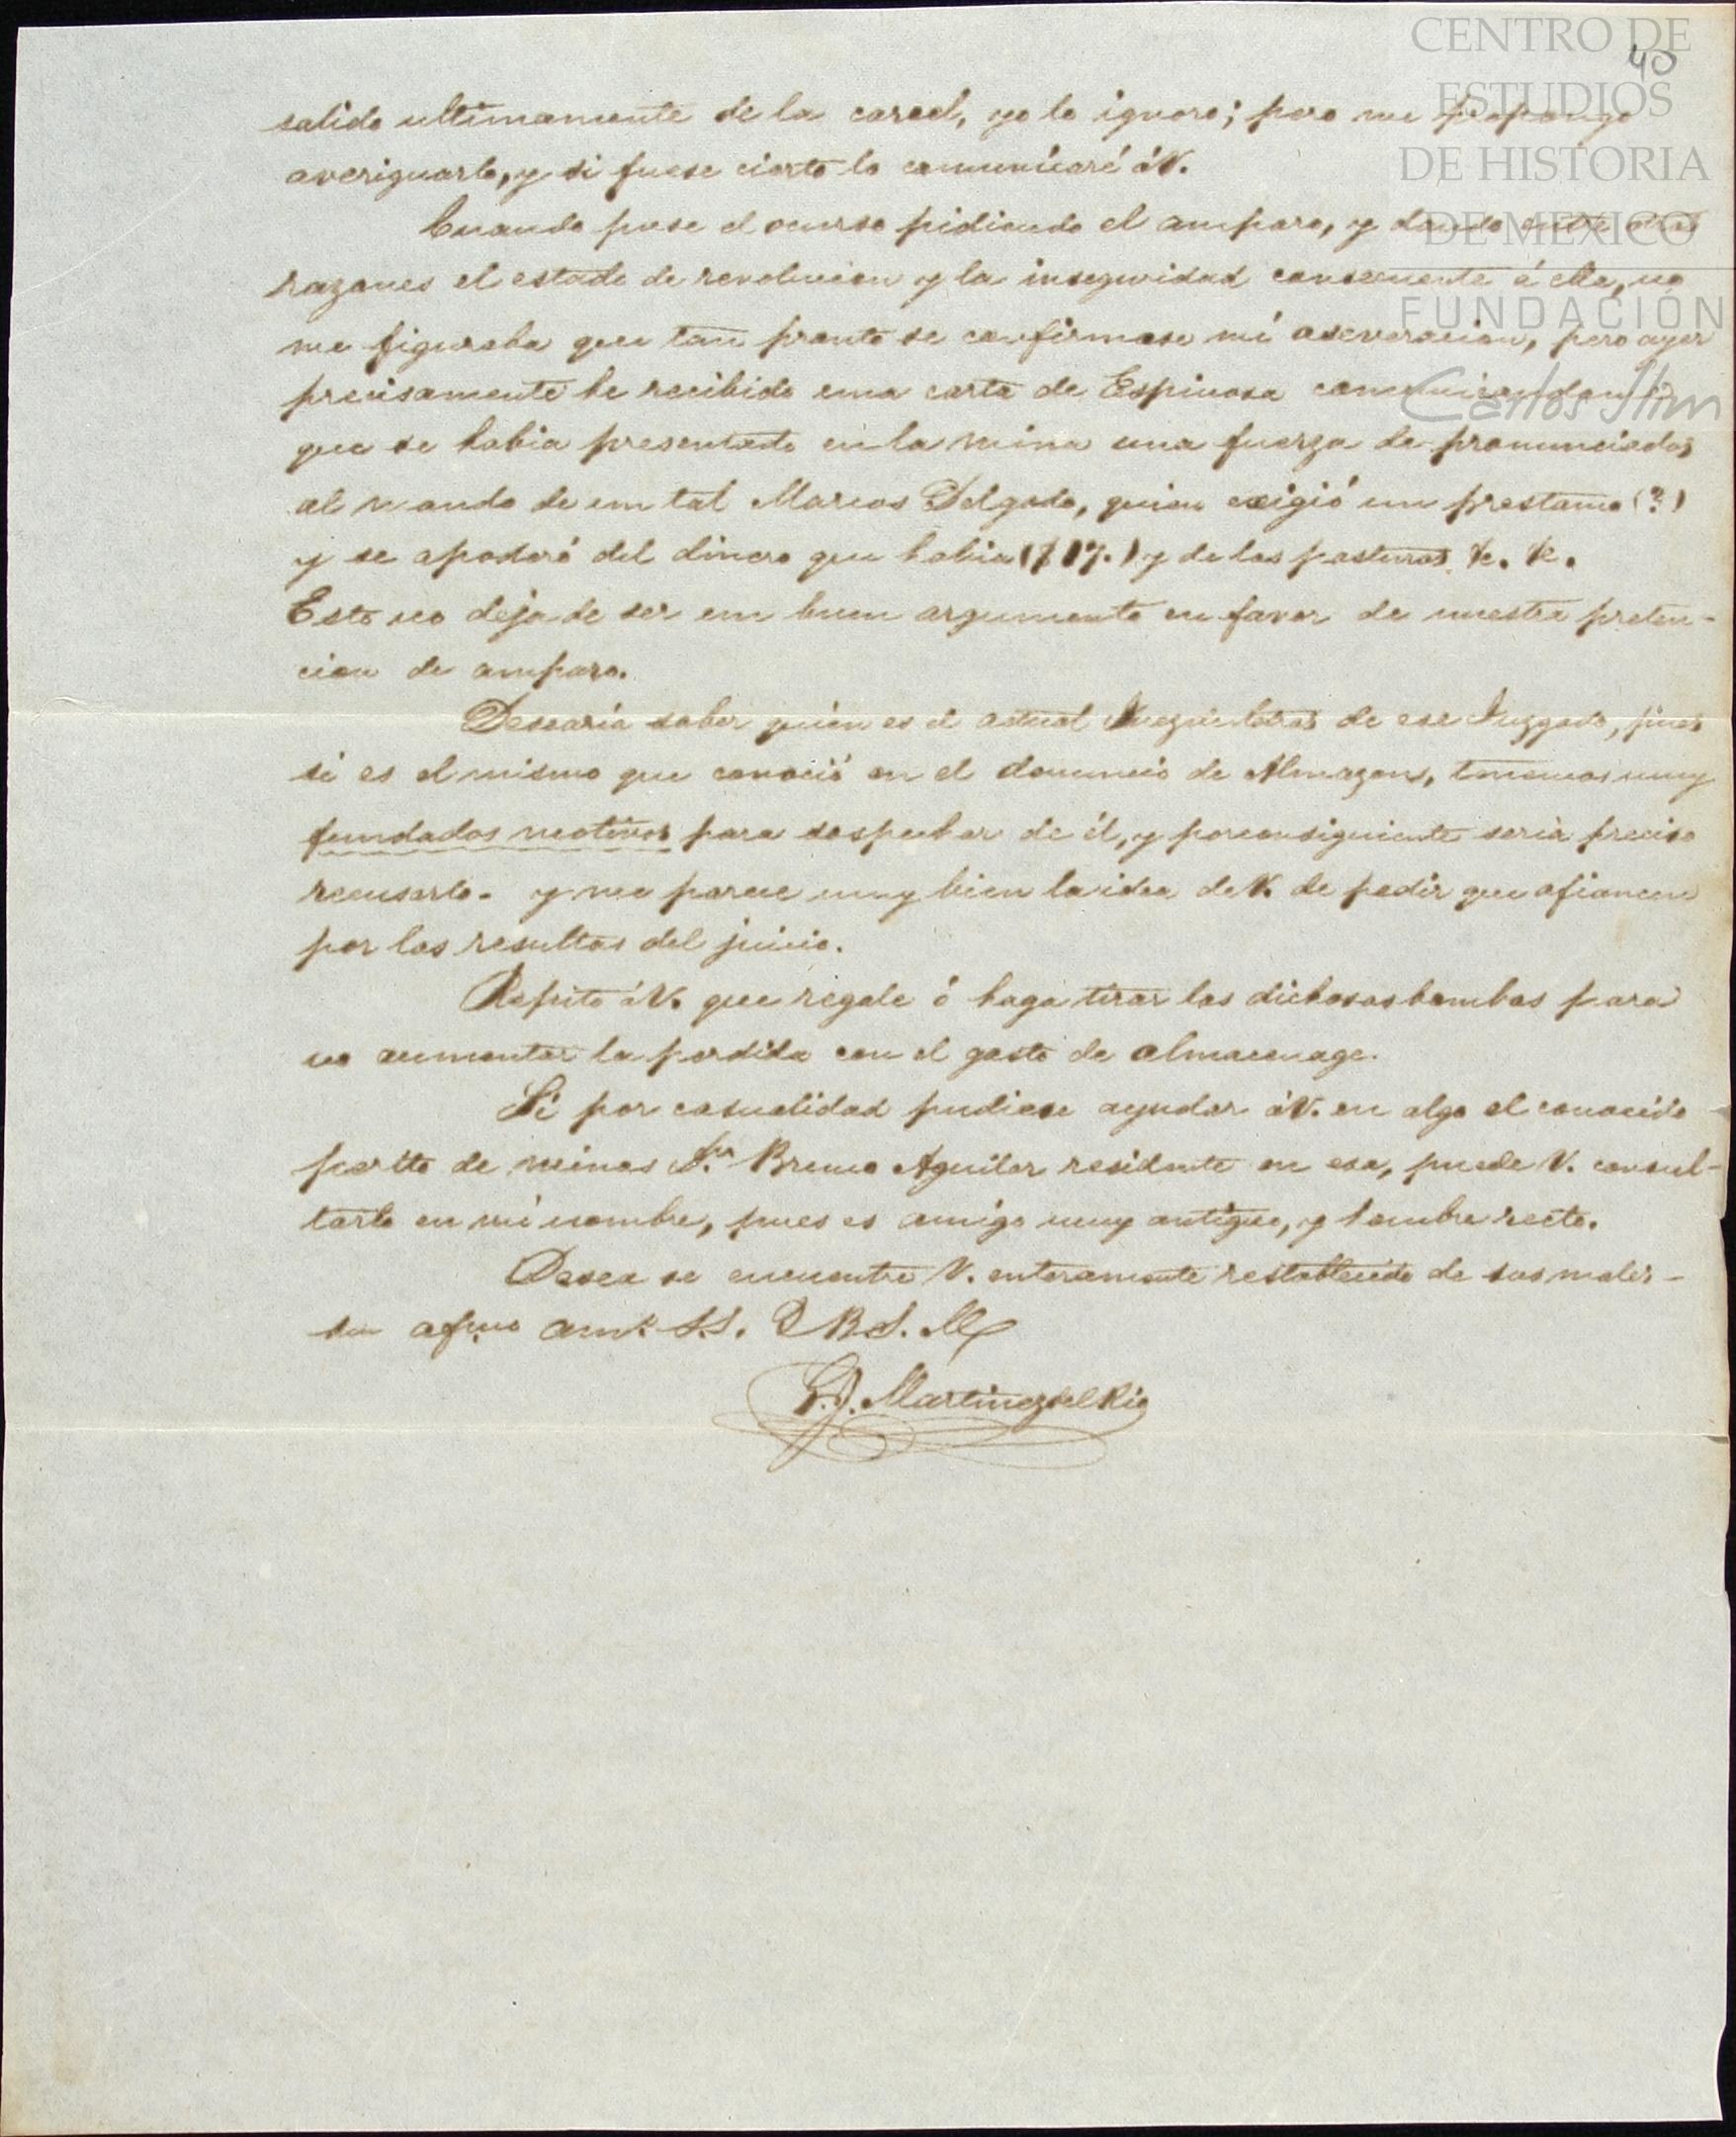 CENTRO DE
ESTUDIOS
DE HISTORIA
DE MEXICO
FUNDACIÓN
Carlos Slim
40
salido ultimamente de la carcel, yo lo ignoro; pero me propongo
averiguarlo, y si fuese cierto lo comunicaré á V.
Cuando puse el ocurso pidiendo el amparo, y dando entre otras
razones el estado de revolucion y la inseguridad consecuente á ella, no
me figuraba que tan pronto se confirmase mi aseveracion, pero ayer
precisamente he recibido una carta de Espinosa comunicandome
que se habia presentado en la mina una fuerza de pronunciados
al mando de un tal Marcos Delgado, quien exigió un prestamo (?)
y se apoderó del dinero que habia y de las pasturas &c. &c.
Esto no deja de ser un buen argumento en favor de nuestra preten-
cion de amparo.
Desearía saber quien es el actual Juez de letras de ese Juzgado, pues
si es el mismo que conoció en el denuncio de Almazan, tenemos muy
fundados motivos para sospechar de él, y por consiguiente seria preciso
recusarlo. y me parece muy bien la idea de V. de pedir que afiancen
por las resultas del juicio.
Repito á V. que regale ó haga tirar las dichosas bombas para
no aumentar la perdida con el gasto de almacenage.
Si por casualidad pudiese ayudar á V. en algo el conocido
perito de minas Sr. Bruno Aguilar residente en esa, puede V. consul-
tarlo en mi nombre, pues es amigo muy antiguo, y hombre recto.
Desea se encuentre V. enteramente restablecido de sus males-
su afmo amo. S.S. Q B S. M
Martinez del Rio